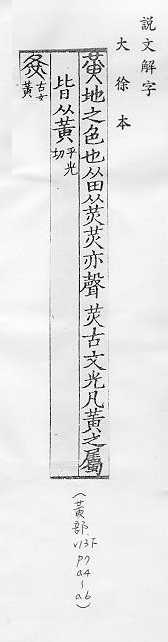 説文解字
大徐本
黃地之色也从田从炗炗亦聲炗古文光凡黃之屬
皆从黃乎光切
古文黃
(黃部.
v13下
p7
a4
~
a6)